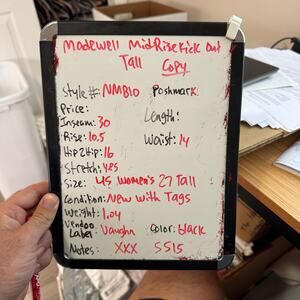 Madewell MidRise Kick Out
Tall Copy
Style #: NM810 Poshmark
Price:
Length:
Inseam: 30
Rise: 10.5
Waist: 14
Hip 2 Hip: 16
Stretch: yes
Size: US Women's 27 Tall
Condition: New with Tags
Weight: 1.04
Vendoo
Label: Vaughn Color: black
Notes: XXX 5515